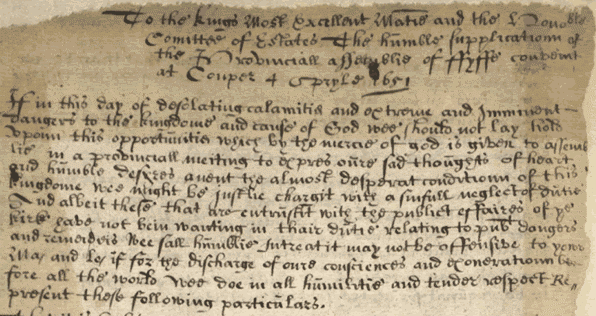 To the Kings Most Excellent Matie and the Honoble
Comittee of Estates The humble supplicatioun of
the Provinciall assemblie of ffyffe conveint
at Couper 4 Apryle 1651
If in this day of desolating calamitie and extreme and Imminent
dangers to the kingdome and cause of God wee should not lay hold
upoun this opportunitie which by the mercie of god is given to assemb
lie in a provinciall meiting to expres oure sad thoughts of heart
and humble desyres anent the almost desperat conditioun of this
kingdome wee might be justlie chargit with a sinfull neglect of dutie
And albeit these that are entrustit with the publict effaires of ye
kirk have not bein wanting in thair dutie relating to pub dangers
and remeideis wee sall humblie intreat it may not be offensive to your
Ma: and Lo: if for the discharge of oure consciences and exoneratioun be
fore all the world wee doe in all humilitie and tender respect Re
present these following particulars.